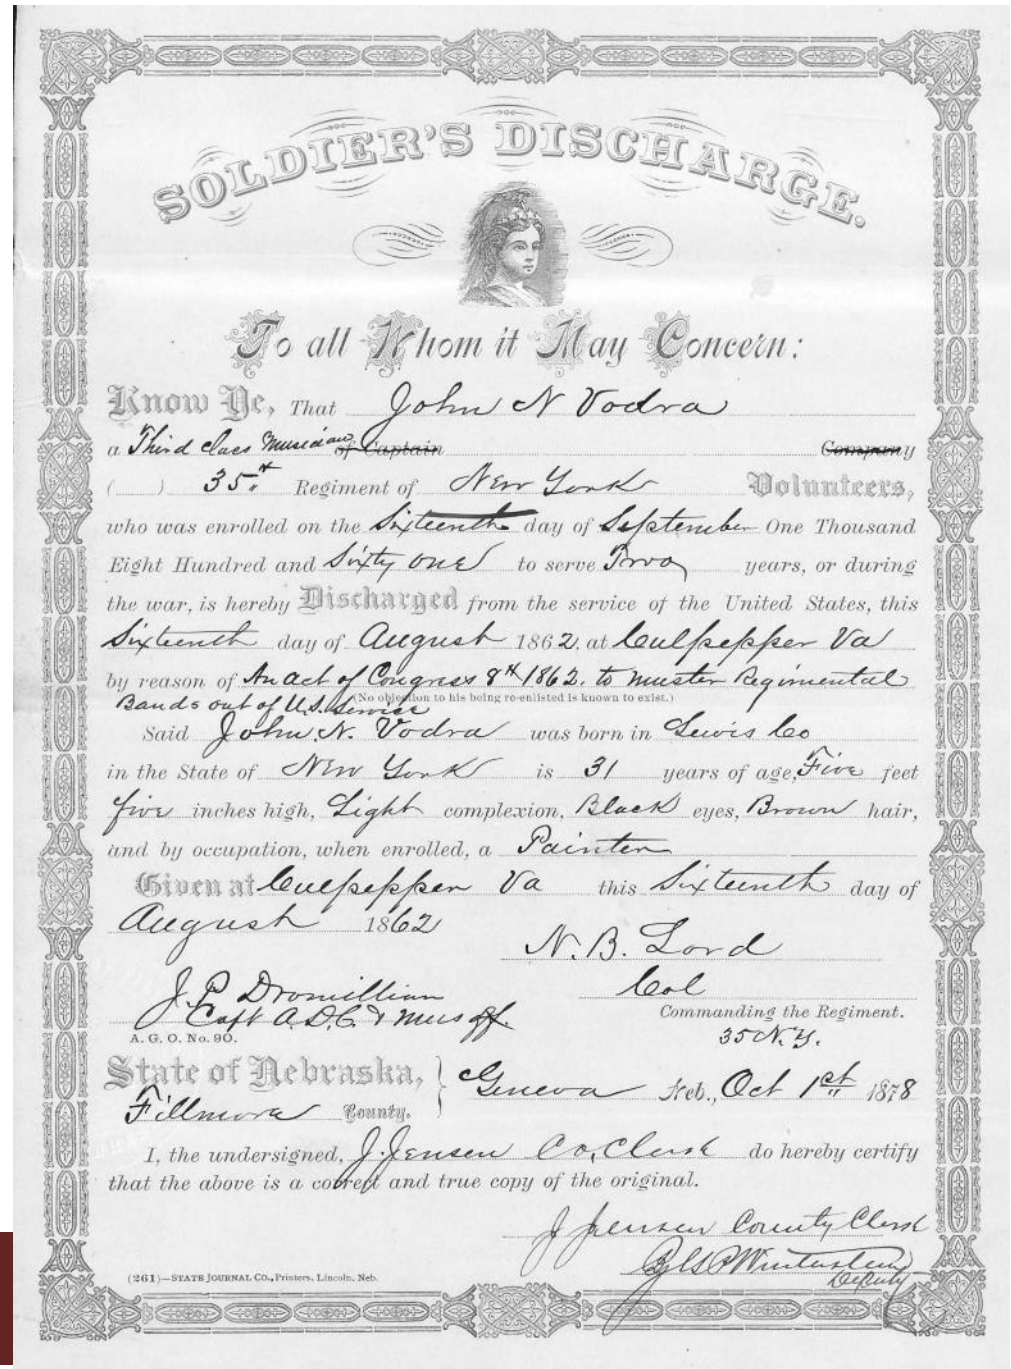 SOLDIER'S DISCHARGE.
To all Whom it May Concern:
Know Ye, That John N Vodra
a Third class Musician of Captain Company
( ) 35th Regiment of New York Volunteers,
who was enrolled on the Sixteenth day of September One Thousand
Eight Hundred and Sixty one to serve Two years, or during
the war, is hereby Discharged from the service of the United States, this
Sixteenth day of August 1862, at Culpepper Va
by reason of An act of Congress 8th 1862. to muster Regimental
(No objection to his being re-enlisted is known to exist.)
Bands out of U.S. Service
Said John. N. Vodra was born in Lewis Co
in the State of New York is 31 years of age, Five feet
five inches high, Light complexion, Black eyes, Brown hair,
and by occupation, when enrolled, a Painter
Given at Culpepper Va this Sixteenth day of
August 1862
N. B. Lord
J. P. Col
Capt A.D.C. & Mus off. Commanding the Regiment.
A. G. O. No. 90. 35 N.Y.
State of Nebraska, Geneva Neb., Oct 1st 1878
Fillmore County.
I, the undersigned, J. Jensen Co, Clerk do hereby certify
that the above is a correct and true copy of the original.
J Jensen County Clerk
By
Deputy
(261)—STATE JOURNAL CO., Printers, Lincoln, Neb.